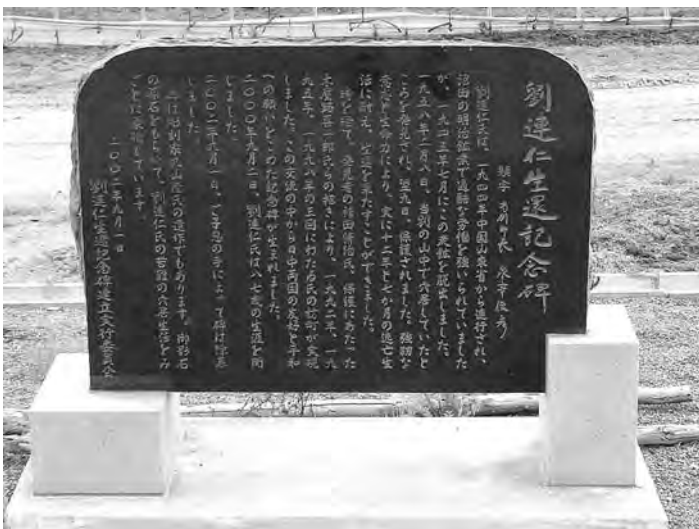 劉連仁生還記念碑
題字 当別町長 泉亭俊彦
劉連仁氏は、一九四四年中国山東省から連行され、
沼田の明治鉱業で過酷な労働を強いられていました
が、一九四五年七月にこの炭鉱を脱出しました。
一九五八年二月八日、当別の山中で穴居していたと
ころを発見され、翌九日、保護されました。強靭な
意志と生命力により、実に十二年と七か月の逃亡生
活に耐え、生還を果たすことができました。
時を経て、発見者の袴田清治氏、保護にあたった
木屋路喜一郎氏らの招きにより、一九九一年、一九
九五年、一九九八年の三回にわたる氏の訪町が実現
しました。この交流の中から日中両国の友好と平和
への願いをこめた記念碑が生まれました。
二〇〇〇年九月二日、劉連仁氏は八七歳の生涯を閉
じました。
二〇〇二年九月一日、ご子息の手によって碑は除幕
しました
碑は彫刻家丸山隆氏の遺作でもあります。御影石
の原石をもちいて、劉連仁氏の苦難の穴居生活をみ
ごとに表現しています。
二〇〇二年九月一日
劉連仁生還記念碑建立実行委員会